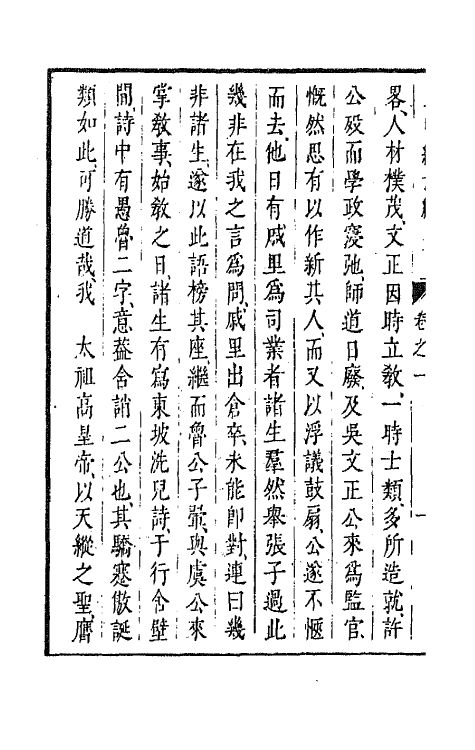 卷之一
一
畧、人材樸茂、文正因時立敎、一時士類、多所造就、許
公歿而學政寖弛、師道日廢、及吳文正公來爲監官、
慨然思有以作新其人、而又以浮議鼓扇、公遂不愜
而去、他日有戚里爲司業者、諸生羣然舉張子過此
幾非在我之言爲問、戚里出倉卒、未能卽對、連曰幾
非諸生、遂以此語榜其座、繼而魯公子翬、與虞公來
掌敎事、始敎之日、諸生有寫東坡洗兒詩、于行舍壁
間、詩中有愚魯二字、意葢含誚二公也、其驕蹇傲誕
類如此、可勝道哉、我　太祖高皇帝、以天縱之聖、膺